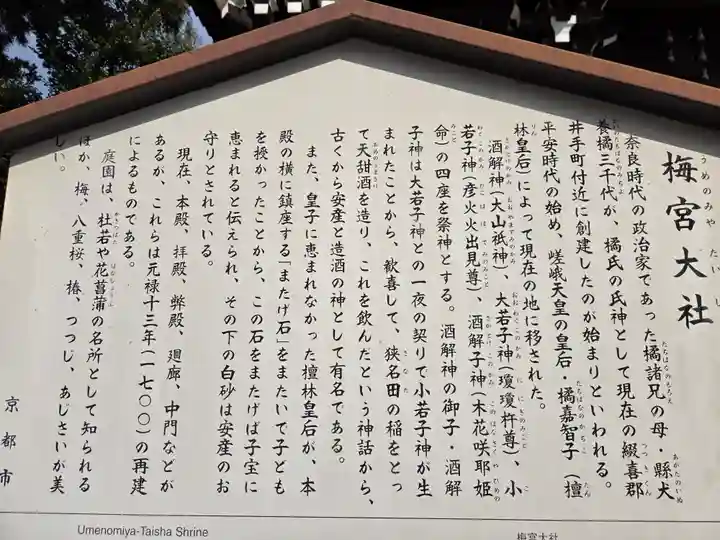 梅宮大社
奈良時代の政治家であった橘諸兄の母・縣犬
養橘三千代が、橘氏の氏神として現在の綴喜郡
井手町付近に創建したのが始まりといわれる。
平安時代の始め、嵯峨天皇の皇后・橘嘉智子（檀
林皇后）によって現在の地に移された。
酒解神（大山祇神）、大若子神（瓊瓊杵尊）、小
若子神（彦火火出見尊）、酒解子神（木花咲耶姫
命）の四座を祭神とする。酒解神の御子・酒解
子神は大若子神との一夜の契りで小若子神が生
まれたことから、歓喜して、狭名田の稲をとっ
て天甜酒を造り、これを飲んだという神話から、
古くから安産と造酒の神として有名である。
また、皇子に恵まれなかった檀林皇后が、本
殿の横に鎮座する「またげ石」をまたいで子ども
を授かったことから、この石をまたげば子宝に
恵まれると伝えられ、その下の白砂は安産のお
守りとされている。
現在、本殿、拝殿、幣殿、廻廊、中門などが
あるが、これらは元禄十三年（一七〇〇）の再建
によるものである。
庭園は、杜若や花菖蒲の名所として知られる
ほか、梅、八重桜、椿、つつじ、あじさいが美
しい。
京都市
Umenomiya-Taisha Shrine
梅宮大社